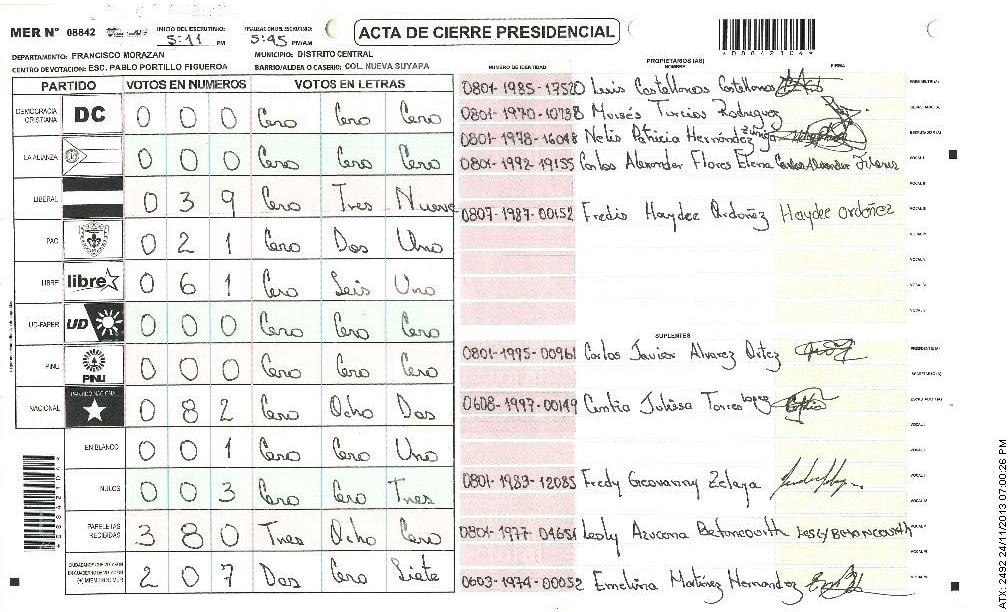 MER N° 08842
INICIO DEL ESCRUTINIO: 5:11 PM
FINALIZACION DEL ESCRUTINIO: 5:45 PM/AM
ACTA DE CIERRE PRESIDENCIAL
DEPARTAMENTO: FRANCISCO MORAZAN
MUNICIPIO: DISTRITO CENTRAL
CENTRO DE VOTACION: ESC. PABLO PORTILLO FIGUEROA
BARRIO/ALDEA O CASERIO: COL. NUEVA SUYAPA
PARTIDO VOTOS EN NUMEROS VOTOS EN LETRAS
DEMOCRACIA CRISTIANA DC 0 0 0 Cero Cero Cero
LA ALIANZA 0 0 0 Cero Cero Cero
LIBERAL 0 3 9 Cero Tres Nueve
PAC 0 2 1 Cero Dos Uno
LIBRE libre 0 6 1 Cero Seis Uno
UD-FAPER UD 0 0 0 Cero Cero Cero
PINU PINU 0 0 0 Cero Cero Cero
NACIONAL PARTIDO NACIONAL 0 8 2 Cero Ocho Dos
EN BLANCO 0 0 1 Cero Cero Uno
NULOS 0 0 3 Cero Cero Tres
PAPELETAS RECIBIDAS 3 8 0 Tres Ocho Cero
CIUDADANOS QUE VOTARON EN CUADERNO DE VOTACIÓN (+) MIEMBROS MER 2 0 7 Dos Cero Siete
NUMERO DE IDENTIDAD
PROPIETARIOS (AS)
NOMBRE FIRMA
0801-1985-17520 Luis Castellanos Castellanos
0801-1970-10738 Moisés Turcios Rodriguez
0801-1978-16048 Nelis Patricia Hernández Zúniga
0801-1992-19155 Carlos Alexander Flores Elena Carlos Alexander Flores
0807-1987-00152 Fredis Haydee Ordoñez Haydee Ordoñez
SUPLENTES
0801-1995-00961 Carlos Javier Alvarez Ortez
0608-1997-00149 Cintia Julissa Torres Lopez Cintia
0801-1983-12085 Fredy Geovanny Zelaya
0801-1977-04656 Lesly Azucena Betancourth LESLY BETANCOURTH
0603-1974-00052 Emelina Martinez Hernandez
ATX-2492 24/11/2013 07:00:26 PM